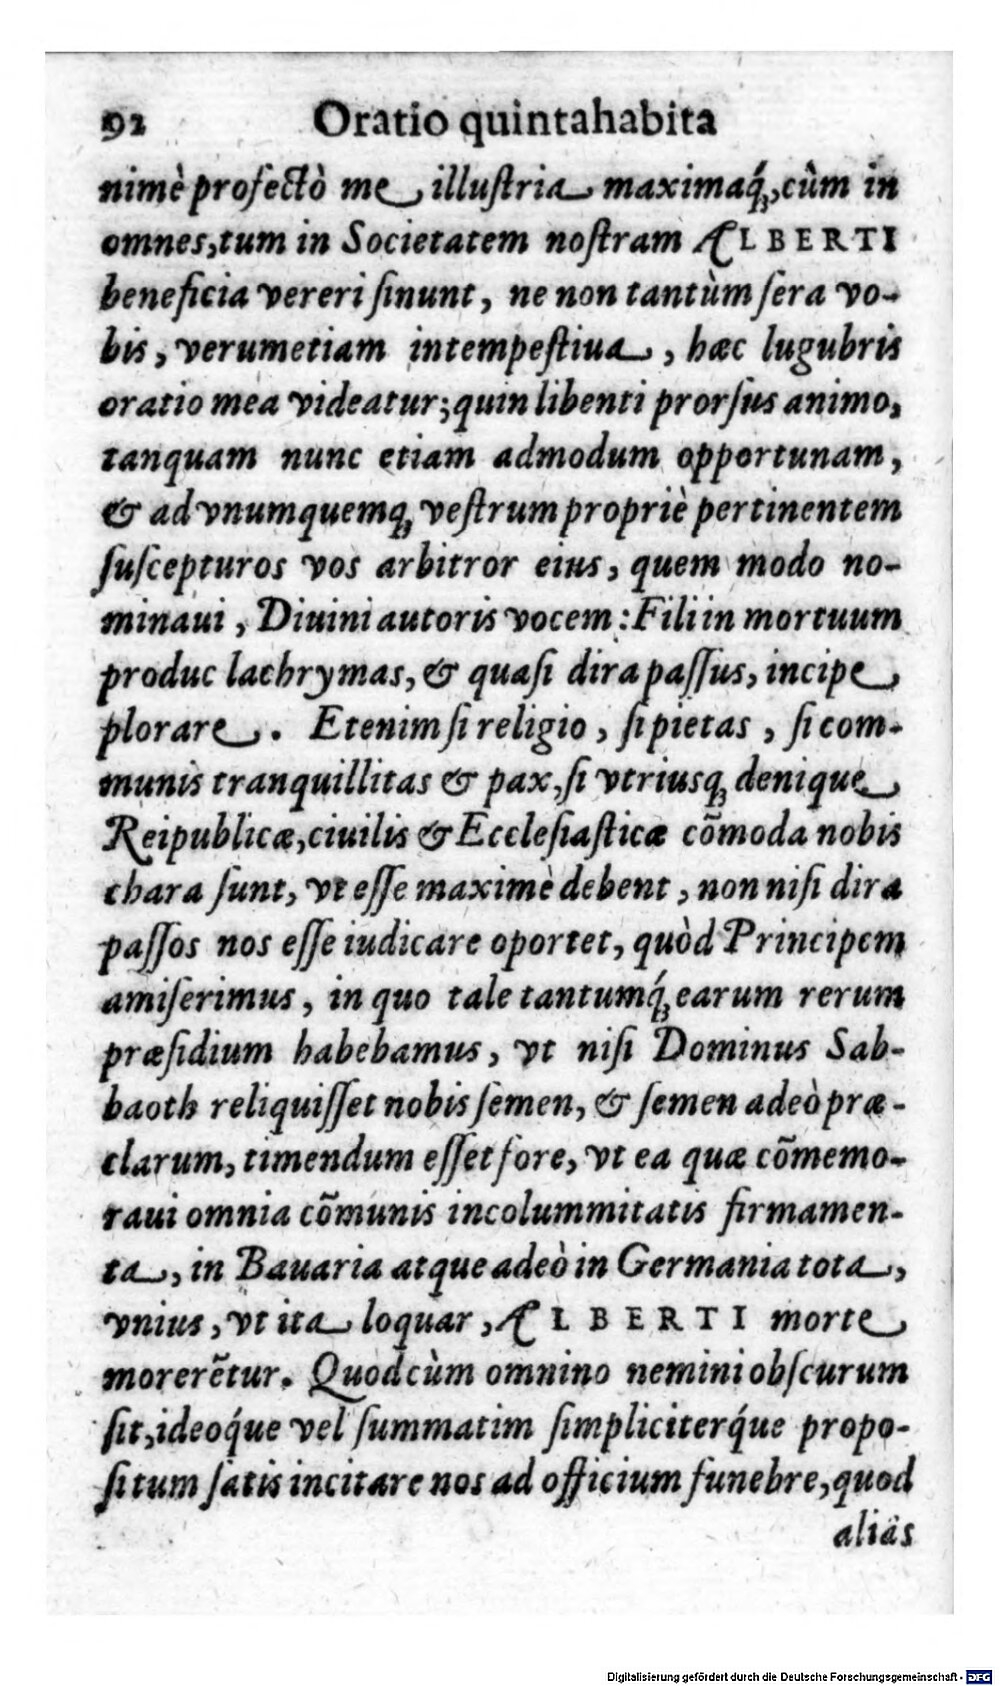 92 Oratio quinta habita
nimè profectò me illuſtria maximaq́;, cùm in
omnes, tum in Societatem noſtram ALBERTI
beneficia vereri ſinunt, ne non tantùm ſera vo-
bis, verumetiam intempeſtiua, hæc lugubris
oratio mea videatur; quin libenti prorſus animo,
tanquam nunc etiam admodum opportunam,
& ad vnumquemq; veſtrum propriè pertinentem
ſuſcepturos vos arbitror eius, quem modo no-
minaui, Diuini autoris vocem: Fili in mortuum
produc lachrymas, & quaſi dira paſſus, incipe
plorare. Etenim ſi religio, ſi pietas, ſi com-
munis tranquillitas & pax, ſi vtriusq; denique
Reipublicæ, ciuilis & Eccleſiaſticæ cõmoda nobis
chara ſunt, vt eſſe maximè debent, non niſi dira
paſſos nos eſſe iudicare oportet, quòd Principem
amiſerimus, in quo tale tantumq́; earum rerum
præſidium habebamus, vt niſi Dominus Sab-
baoth reliquiſſet nobis ſemen, & ſemen adeò præ-
clarum, timendum eſſet fore, vt ea quæ cõmemo-
raui omnia cõmunis incolummitatis firmamen-
ta, in Bauaria atque adeò in Germania tota,
vnius, vt ita loquar, ALBERTI morte
morerẽtur. Quod cùm omnino nemini obſcurum
ſit, ideoq́ue vel ſummatim ſimpliciterq́ue propo-
ſitum ſatis incitare nos ad officium funebre, quod
aliàs
Digitalisierung gefördert durch die Deutsche Forschungsgemeinschaft - DFG